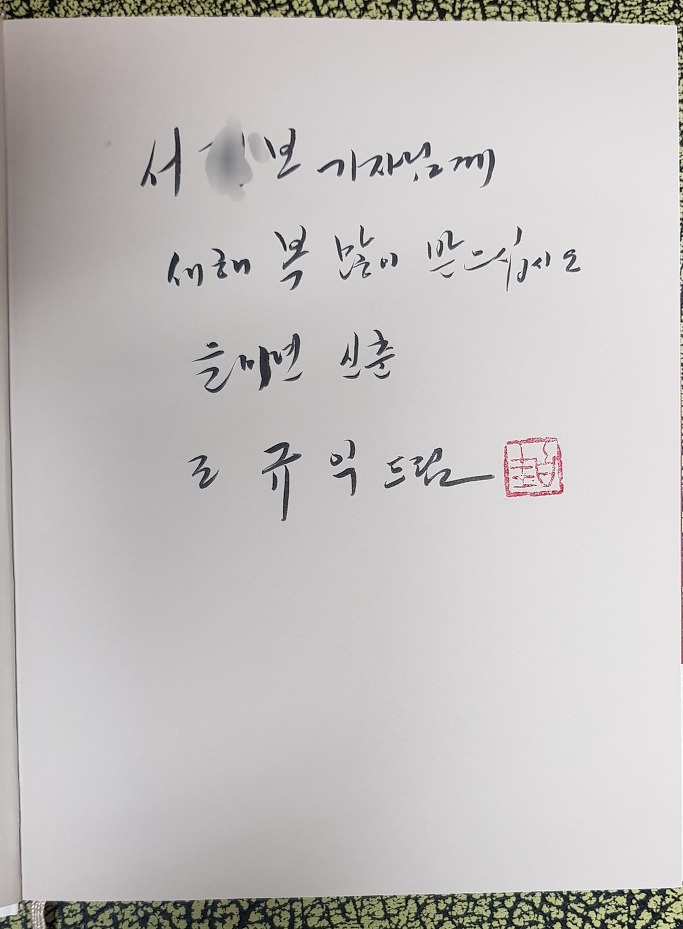 서 보 기자님께
새해 복 많이 받으십시오
을미년 신춘
조규익 드림